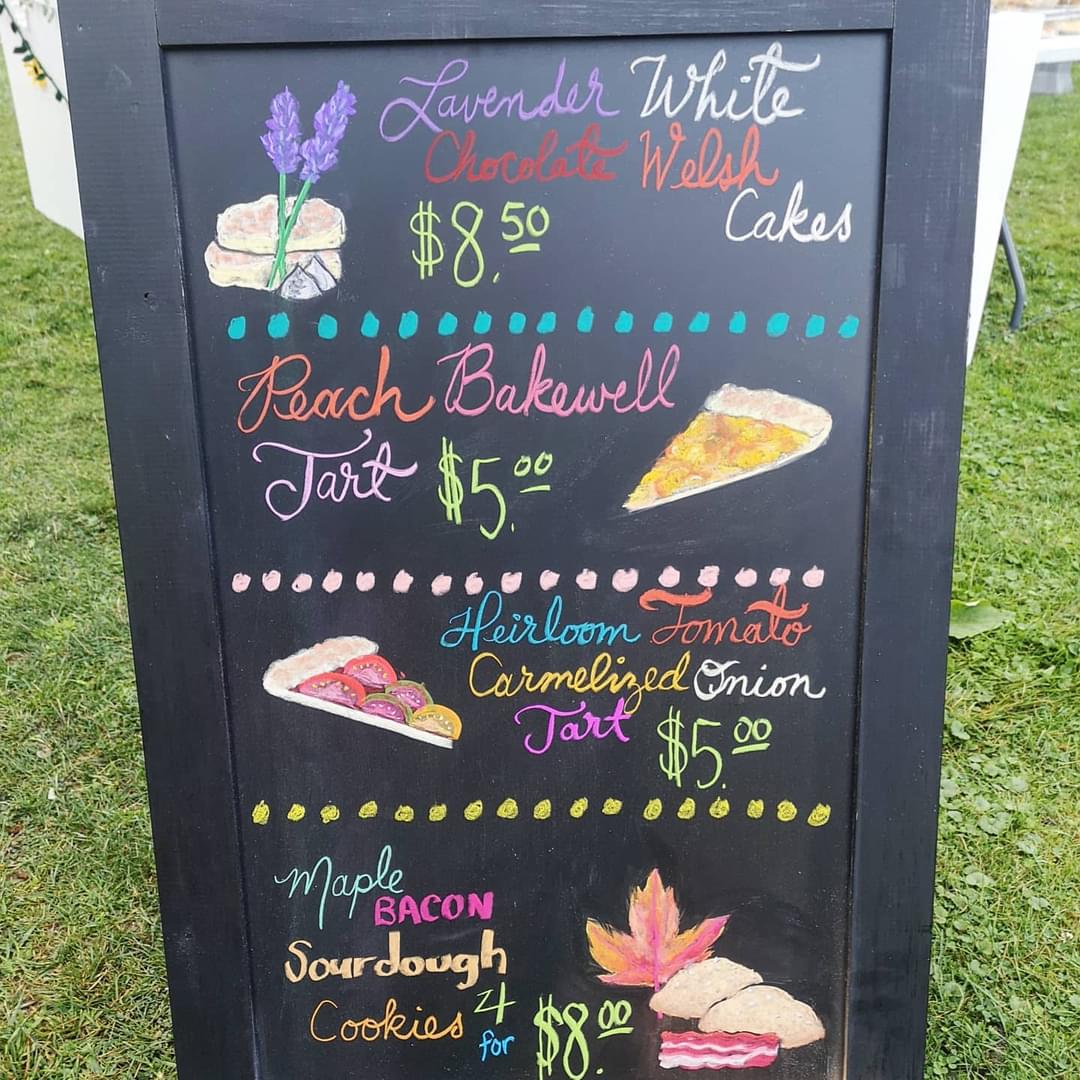 Lavender White
Chocolate Welsh
Cakes
$8.50
Peach Bakewell
Tart $5.00
Heirloom Tomato
Carmelized Onion
Tart $5.00
Maple
BACON
Sourdough
Cookies 4 for $8.00